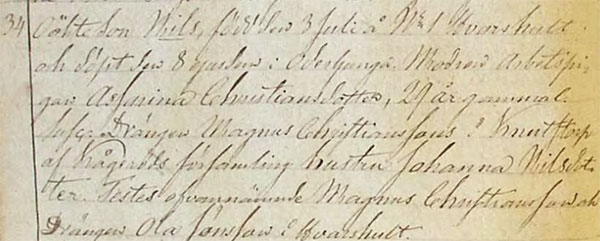 34 Oäkta Son Nils, född den 3 Juli å No 1 Kvarshult
och döpt den 8 ejusdem i Oderljunga. Modren Arbetspi-
gan Assarina Christiansdotter, 29 år gammal.
Susc: Drängen Magnus Christianssons i Knutstorp
af Kågeröds församling hustru Johanna Nilsdot-
ter. Testes ofvannämnde Magnus Christiansson och
Drängen Ola Jönsson i Kvarshult.